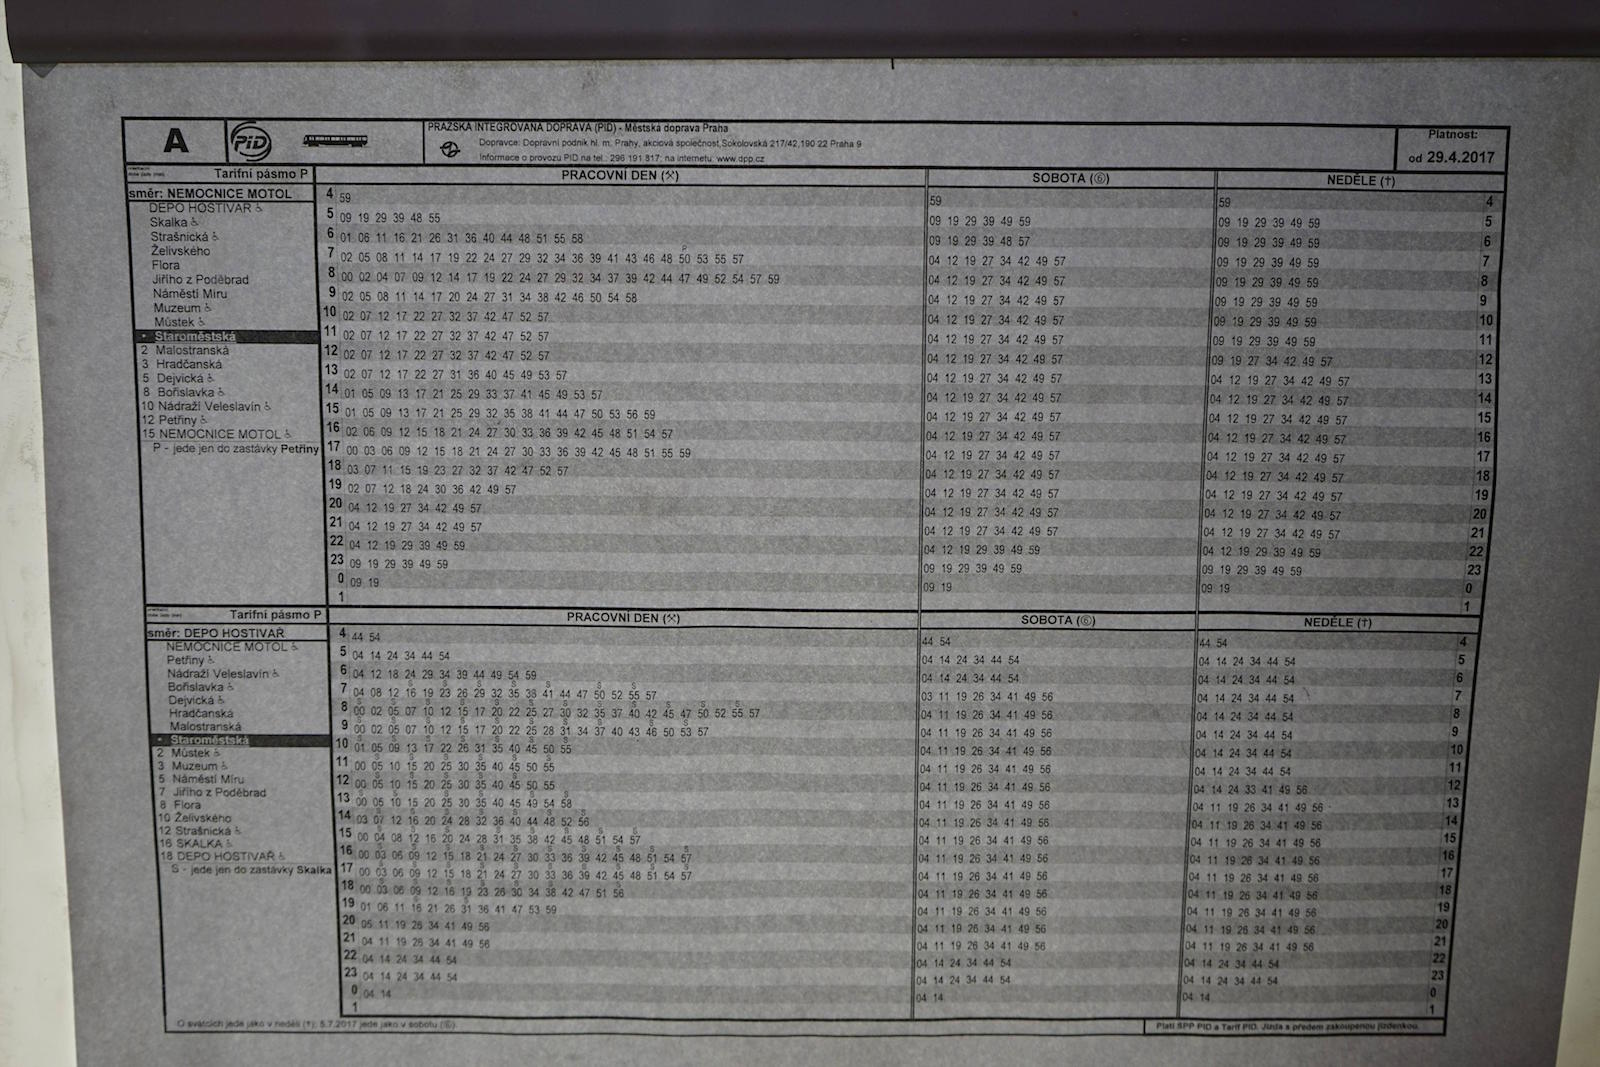 A
PiD
PRAŽSKÁ INTEGROVANÁ DOPRAVA (PID) - Městská doprava Praha
Dopravce: Dopravní podnik hl. m. Prahy, akciová společnost,Sokolovská 217/42,190 22 Praha 9
Informace o provozu PID na tel.: 296 191 817; na internetu: www.dpp.cz
Platnost:
od 29.4.2017
Tarifní pásmo P
PRACOVNÍ DEN (⚒) SOBOTA (⑥) NEDĚLE (†)
směr: NEMOCNICE MOTOL
DEPO HOSTIVAŘ ♿
Skalka ♿
Strašnická ♿
Želivského
Flora
Jiřího z Poděbrad
Náměstí Míru
Muzeum ♿
Můstek ♿
• Staroměstská
2 Malostranská
3 Hradčanská
5 Dejvická ♿
8 Bořislavka ♿
10 Nádraží Veleslavín ♿
12 Petřiny ♿
15 NEMOCNICE MOTOL ♿
P - jede jen do zastávky Petřiny
4 59 59 59 4
5 09 19 29 39 48 55 09 19 29 39 49 59 09 19 29 39 49 59 5
6 01 06 11 16 21 26 31 36 40 44 48 51 55 58 09 19 29 39 48 57 09 19 29 39 49 59 6
P
7 02 05 08 11 14 17 19 22 24 27 29 32 34 36 39 41 43 46 48 50 53 55 57 04 12 19 27 34 42 49 57 09 19 29 39 49 59 7
8 00 02 04 07 09 12 14 17 19 22 24 27 29 32 34 37 39 42 44 47 49 52 54 57 59 04 12 19 27 34 42 49 57 09 19 29 39 49 59 8
9 02 05 08 11 14 17 20 24 27 31 34 38 42 46 50 54 58 04 12 19 27 34 42 49 57 09 19 29 39 49 59 9
10 02 07 12 17 22 27 32 37 42 47 52 57 04 12 19 27 34 42 49 57 09 19 29 39 49 59 10
11 02 07 12 17 22 27 32 37 42 47 52 57 04 12 19 27 34 42 49 57 09 19 29 39 49 59 11
12 02 07 12 17 22 27 32 37 42 47 52 57 04 12 19 27 34 42 49 57 09 19 27 34 42 49 57 12
13 02 07 12 17 22 27 31 36 40 45 49 53 57 04 12 19 27 34 42 49 57 04 12 19 27 34 42 49 57 13
14 01 05 09 13 17 21 25 29 33 37 41 45 49 53 57 04 12 19 27 34 42 49 57 04 12 19 27 34 42 49 57 14
15 01 05 09 13 17 21 25 29 32 35 38 41 44 47 50 53 56 59 04 12 19 27 34 42 49 57 04 12 19 27 34 42 49 57 15
16 02 06 09 12 15 18 21 24 27 30 33 36 39 42 45 48 51 54 57 04 12 19 27 34 42 49 57 04 12 19 27 34 42 49 57 16
17 00 03 06 09 12 15 18 21 24 27 30 33 36 39 42 45 48 51 55 59 04 12 19 27 34 42 49 57 04 12 19 27 34 42 49 57 17
18 03 07 11 15 19 23 27 32 37 42 47 52 57 04 12 19 27 34 42 49 57 04 12 19 27 34 42 49 57 18
19 02 07 12 18 24 30 36 42 49 57 04 12 19 27 34 42 49 57 04 12 19 27 34 42 49 57 19
20 04 12 19 27 34 42 49 57 04 12 19 27 34 42 49 57 04 12 19 27 34 42 49 57 20
21 04 12 19 27 34 42 49 57 04 12 19 27 34 42 49 57 04 12 19 27 34 42 49 57 21
22 04 12 19 29 39 49 59 04 12 19 29 39 49 59 04 12 19 29 39 49 59 22
23 09 19 29 39 49 59 09 19 29 39 49 59 09 19 29 39 49 59 23
0 09 19 09 19 09 19 0
1 1
Tarifní pásmo P
PRACOVNÍ DEN (⚒) SOBOTA (⑥) NEDĚLE (†)
směr: DEPO HOSTIVAŘ
NEMOCNICE MOTOL ♿
Petřiny ♿
Nádraží Veleslavín ♿
Bořislavka ♿
Dejvická ♿
Hradčanská
Malostranská
• Staroměstská
2 Můstek ♿
3 Muzeum ♿
5 Náměstí Míru
7 Jiřího z Poděbrad
8 Flora
10 Želivského
12 Strašnická ♿
16 SKALKA ♿
18 DEPO HOSTIVAŘ ♿
S - jede jen do zastávky Skalka
4 44 54 44 54 44 54 4
5 04 14 24 34 44 54 04 14 24 34 44 54 04 14 24 34 44 54 5
6 04 12 18 24 29 34 39 44 49 54 59 04 14 24 34 44 54 04 14 24 34 44 54 6
7 04 08 12 16 19 23 26 29 32 35 38 41 44 47 50 52 55 57 03 11 19 26 34 41 49 56 04 14 24 34 44 54 7
8 00 02 05 07 10 12 15 17 20 22 25 27 30 32 35 37 40 42 45 47 50 52 55 57 04 11 19 26 34 41 49 56 04 14 24 34 44 54 8
9 00 02 05 07 10 12 15 17 20 22 25 28 31 34 37 40 43 46 50 53 57 04 11 19 26 34 41 49 56 04 14 24 34 44 54 9
10 01 05 09 13 17 22 26 31 35 40 45 50 55 04 11 19 26 34 41 49 56 04 14 24 34 44 54 10
11 00 05 10 15 20 25 30 35 40 45 50 55 04 11 19 26 34 41 49 56 04 14 24 34 44 54 11
12 00 05 10 15 20 25 30 35 40 45 50 55 04 11 19 26 34 41 49 56 04 14 24 33 41 49 56 12
13 00 05 10 15 20 25 30 35 40 45 49 54 58 04 11 19 26 34 41 49 56 04 11 19 26 34 41 49 56 13
14 03 07 12 16 20 24 28 32 36 40 44 48 52 56 04 11 19 26 34 41 49 56 04 11 19 26 34 41 49 56 14
15 00 04 08 12 16 20 24 28 31 35 38 42 45 48 51 54 57 04 11 19 26 34 41 49 56 04 11 19 26 34 41 49 56 15
16 00 03 06 09 12 15 18 21 24 27 30 33 36 39 42 45 48 51 54 57 04 11 19 26 34 41 49 56 04 11 19 26 34 41 49 56 16
17 00 03 06 09 12 15 18 21 24 27 30 33 36 39 42 45 48 51 54 57 04 11 19 26 34 41 49 56 04 11 19 26 34 41 49 56 17
18 00 03 06 09 12 16 19 23 26 30 34 38 42 47 51 56 04 11 19 26 34 41 49 56 04 11 19 26 34 41 49 56 18
19 01 06 11 16 21 26 31 36 41 47 53 59 04 11 19 26 34 41 49 56 04 11 19 26 34 41 49 56 19
20 05 11 19 26 34 41 49 56 04 11 19 26 34 41 49 56 04 11 19 26 34 41 49 56 20
21 04 11 19 26 34 41 49 56 04 11 19 26 34 41 49 56 04 11 19 26 34 41 49 56 21
22 04 14 24 34 44 54 04 14 24 34 44 54 04 14 24 34 44 54 22
23 04 14 24 34 44 54 04 14 24 34 44 54 04 14 24 34 44 54 23
0 04 14 04 14 04 14 0
1 1
O svátcích jede jako v neděli (†); 5.7.2017 jede jako v sobotu (⑥).
Platí SPP PID a Tarif PID. Jízda s předem zakoupenou jízdenkou.